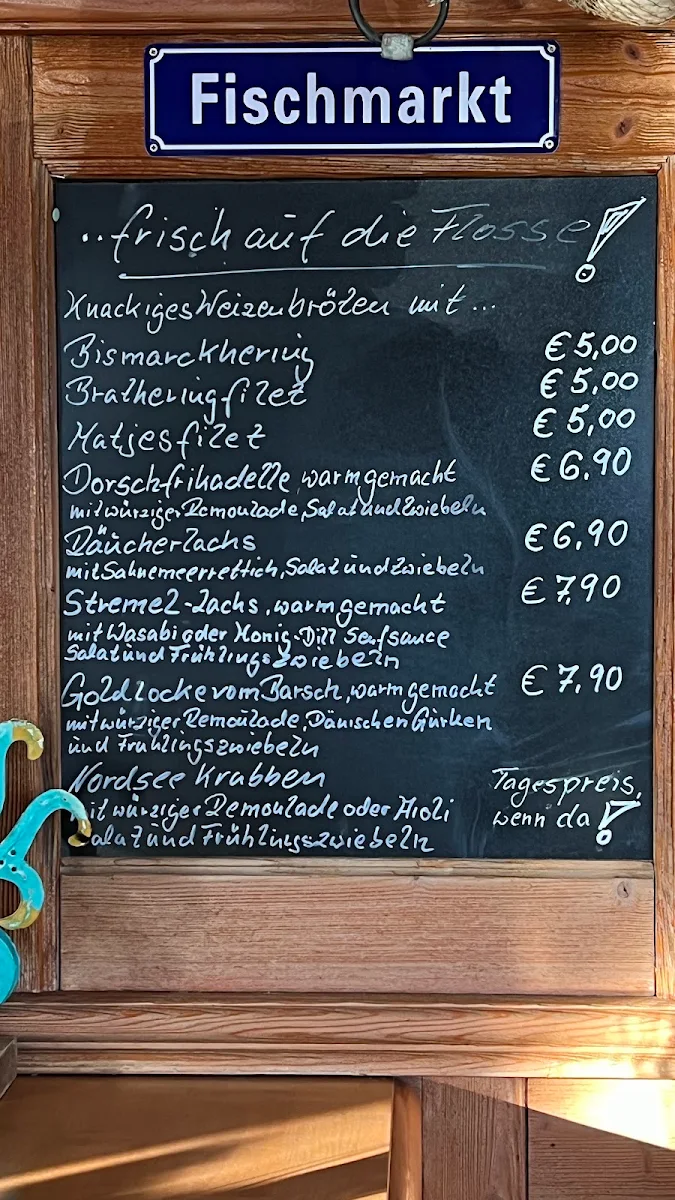 Fischmarkt
..frisch auf die Flosse!
Knackiges Weizenbrölen mit ...
Bismarckhering € 5,00
Bratheringfilet € 5,00
Matjesfilet € 5,00
Dorschfrikadelle, warmgemacht € 6.90
mit würziger Remoulade, Salat und Zwiebeln
Räucherlachs € 6,90
mit Sahnemeerrettich, Salat und Zwiebeln
Stremel-Lachs, warmgemacht € 7.90
mit Wasabi oder Honig-Dill Senfsauce
Salat und Frühlingszwiebeln
Goldlocke vom Barsch, warmgemacht € 7.90
mit würziger Remoulade, Dänischen Gurken
und Frühlingszwiebeln
Nordsee Krabben Tagespreis,
mit würziger Remoulade oder Aioli wenn da!
Salat und Frühlingszwiebeln